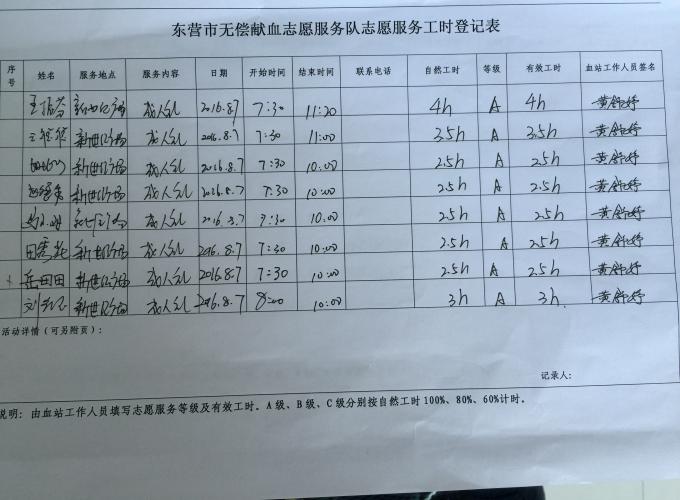 东营市无偿献血志愿服务队志愿服务工时登记表
序号 姓名 服务地点 服务内容 日期 开始时间 结束时间 联系电话 自然工时 等级 有效工时 血站工作人员签名
新世纪广场 成人礼 2016.8.7 7:30 11:20 4h A 4h 黄舒婷
新世纪广场 成人礼 2016.8.7 7:30 11:00 3.5h A 3.5h 黄舒婷
新世纪广场 成人礼 2016.8.7 7:30 10:00 2.5h A 2.5h 黄舒婷
新世纪广场 成人礼 2016.8.7 7:30 10:00 2.5h A 2.5h 黄舒婷
成人礼 2016.8.7 7:30 10:00 2.5h A 2.5h 黄舒婷
新世纪广场 成人礼 2016.8.7 7:30 10:00 2.5h A 2.5h 黄舒婷
岳田田 新世纪广场 成人礼 2016.8.7 7:30 10:00 2.5h A 2.5h 黄舒婷
新世纪广场 成人礼 2016.8.7 8:00 10:00 3h A 3h. 黄舒婷
活动详情(可另附页):
记录人:
说明: 由血站工作人员填写志愿服务等级及有效工时。A级、B级、C级分别按自然工时100%、80%、60%计时。